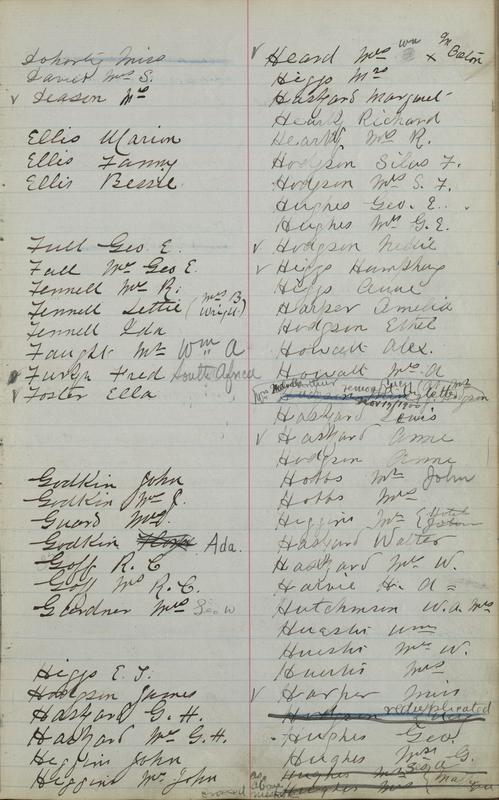 Doherty Miss
Davies Mrs S.
v Deason Mrs
Ellis Marion
Ellis Fanny
Ellis Bessie
Full Geo E.
Full Mrs Geo E.
Fennell Mrs R.
Fennell Lettie (Mrs B Wright)
Fennell Ida
Faught Mr Wm A
v Furze Fred South Africa
v Foster Ella
Godkin John
Godkin Mrs J.
Guard Mrs.
Godkin Ada.
Goff R. C
Goff Mrs R. C.
Gardner Mrs Geo W
Higgs E. J.
Hodgson James
Haszard G. H.
Haszard Mrs G. H.
Higgins John
Higgins Mrs John
v Heard Mrs Wm x
Higgs Mrs
Haszard Margaret
Heartz Richard
Heartz Mrs R.
Hodgson Silas F.
Hodgson Mrs S. F.
Hughes Geo. E.
Hughes Mrs G. E.
v Hodgson Nellie
v Higgs Humphrey
Higgs Annie
Harper Amelia
Hodgson Ethel
Howatt Alex.
Howatt Mrs A
Nov 19/1900
Haszard Lewis
v Haszard Anne
Hodgson Anne
Hobbs Mr John
Hobbs Mrs
Higgins Mr E
Haszard Walter
Haszard Mrs W.
Harvie H. A
Hutchinson W. A Mrs
Huestis Wm
Huestis Mrs W.
Huestis Mrs
v Harper Miss
Hodgson reduplicated
Hughes Geo.
Hughes Mrs G.
Hughes Mrs
Hughes Mrs